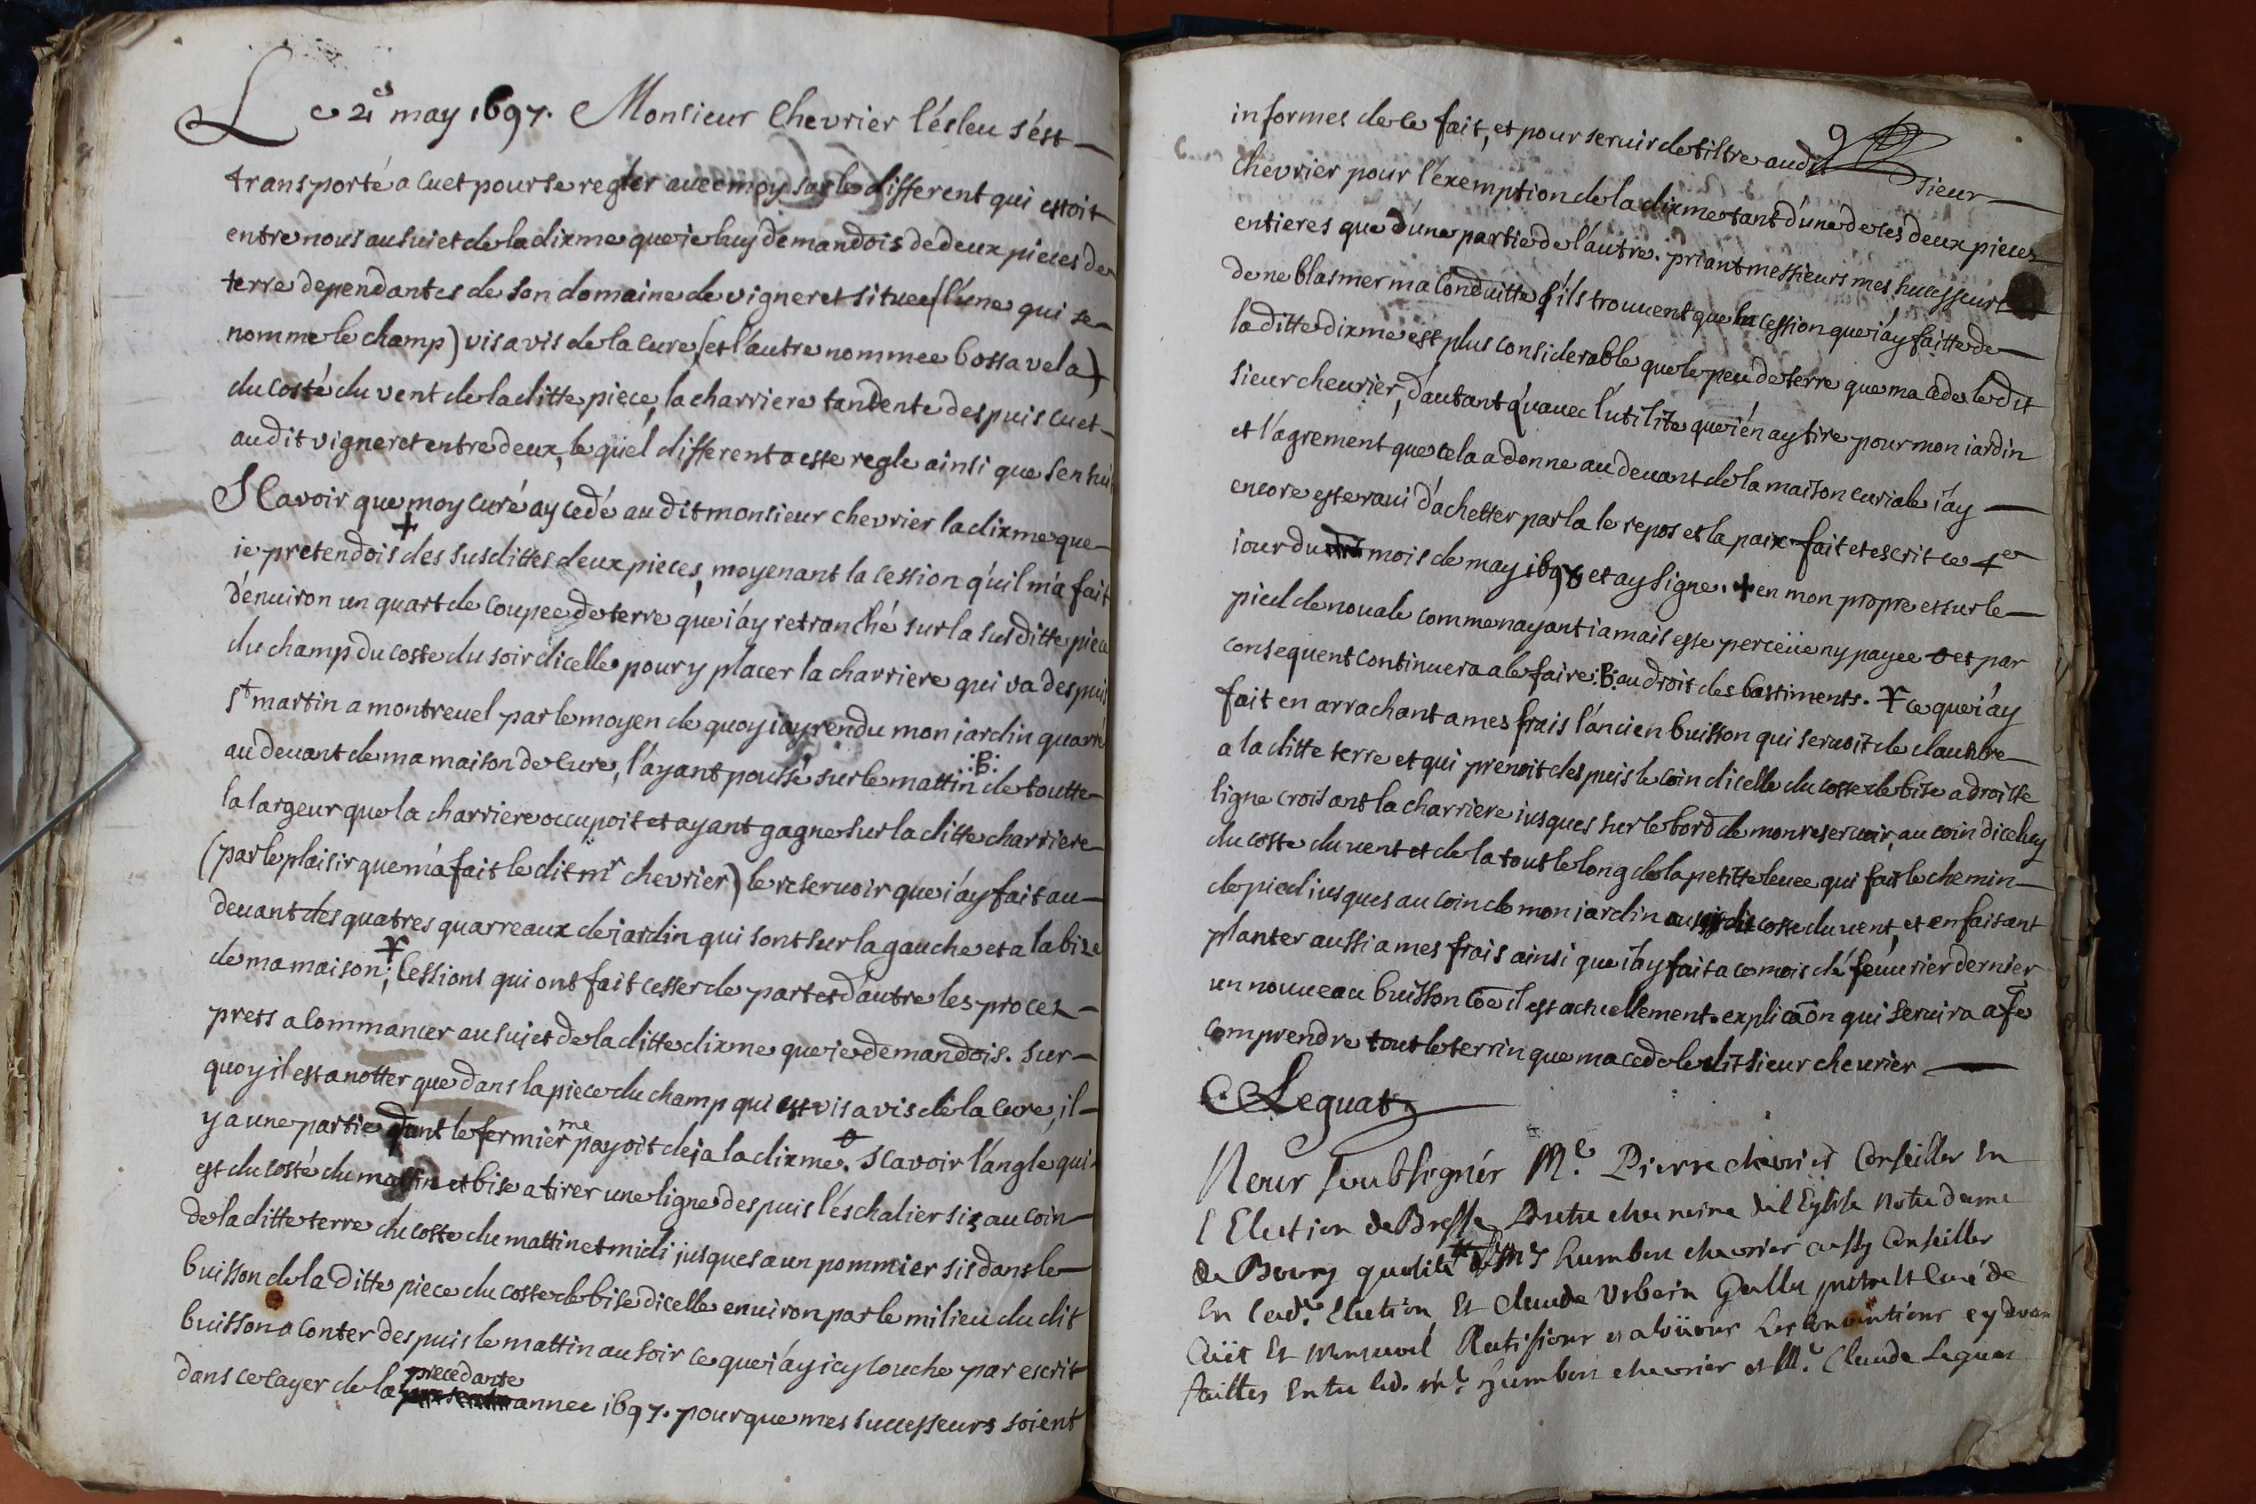 Le 21es may 1697. Monsieur Chevrier l'ésleu s'ést
transporté a cuet pour se regler avec moy sur le different qui estoit
entre nous au suiet de la dixme que ie luy demandois de deux pieces de
terre dependantes de son domaine de vigneret situees (l'une qui se
nomme le champ) vis a vis de la cure, (et l'autre nommee bossa vela)
du costé du vent de la ditte piece, la charriere tandente despuis cuet
au dit vigneret entre deux, le quel different a este regle ainsi que sensui
Scavoir que moy curé ay cedé au dit monsieur chevrier la dixme que
ie pretendois + des susdittes deux pieces, moyenant la cession qu'il m'a fait
d'enuiron un quart de coupee de terre que i'ay retranché sur la susditte piece
du champ du coste du soir dicelle pour y placer la charriere qui va despuis
st martin a montreuel par le moyen de quoy iay rendu mon iardin quarré
au deuant de ma maison de cure, l'ayant poussé sur le mattin :B: de toutte
la largeur que la charriere occupoit et ayant gagne sur la ditte charriere
(par le plaisir que m'a fait le dit mr chevrier) le reseruoir que i'ay fait au
deuant des quatres quarreaux de jardin qui sont sur la gauche et a la bize
de ma maison; cessions qui ont fait cesser de part et d'autre les procez
prets a commancer au sujet de la ditte dixme que ie demandois. sur
quoy il est a notter que dans la piece du champ qui est vis a vis de la cure, il
y a une partie dont le fermier me payoit deja la dixme. scavoir l'angle qui
est du costé du mattin et bise a tirer une ligne despuis l'éschalier sis au coin
de la ditte terre du coste du mattin et midi jusques a un pommier sis dans le
buisson de la ditte piece du coste de bise dicelle enuiron par le milieu du dit
buisson a conter despuis le mattin au soir ce que i'ay icy couche par escrit
dans ce cayer de la precedante annee 1697. pour que mes successeurs soient
informes de ce fait, et pour seruir de tiltre audit sieur
chevrier pour l'éxemption de la dixme tant d'une de ces deux pieces
entieres que d'une partie de l'autre. priant messieurs mes successeurs
de ne blasmer ma conduitte s'ils trouuent que la cession que i'ay faitte de
la ditte dixme est plus considerable que le peu de terre que ma cede le dit
sieur cheurier, d'autant qu'auec l'utilite que i'en ay tire pour mon iardin
et l'agrement que cela a donne au deuant de la maison curiale i'ay
encore este raui d'achetter par la le repos et la paix. fait et escrit ce 4e
iour du mois de may 1698 et ay signe. + en mon propre et sur le
pied de nouale comme n'ayant iamais este perceüe ny payee et par
consequent continuera a le faire :B: au droit des bastiments. ce que i'ay
fait en arrachant a mes frais l'ancien buisson qui seruoit de clausture
a la ditte terre et qui prenoit despuis le coin dicelle du coste de bise a droitte
ligne croisant la charriere iusques sur le bord de mon reseruoir, au coin diceluy
du coste du vent et de la tout le long de la petitte leuee qui fait le chemin
de pied iusques au coin de mon iardin du coste du vent, et en faisant
planter aussi a mes frais ainsi que i'ay fait a ce mois de féurier dernier
un nouueau buisson cōe il est actuellement. explicãon qui seruira a fe
comprendre tout le terrin que ma cede le dit sieur cheurier
C. Leguat
Nous soubsignés Me. Pierre chevrier Conseiller en
l'Election de Bresse chanoine de l'Eglise notre dame
de Bourg Humbert chevrier aussy Conseiller
en lad. Election, et Claude Urbain Gallu prestre et Curé de
Cuët et Ratifions et les conventions cy devan
faittes entre led. Mr. humbert chevrier et Mr. Claude Leguat